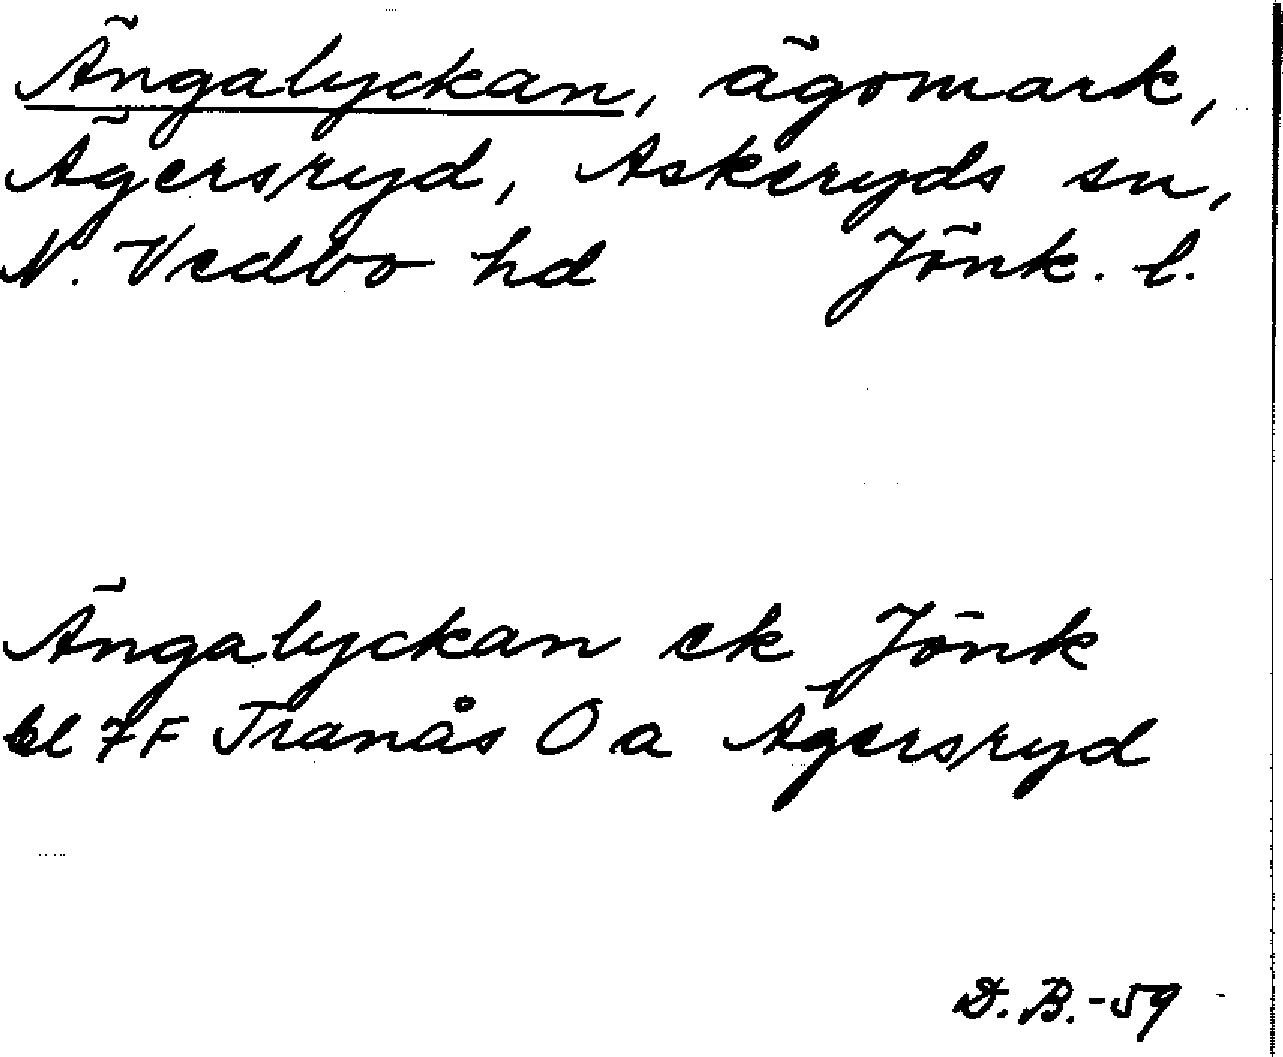 Ängalyckan, ägomark,
Ägersryd, Askeryds sn,
N. Vedbo hd Jönk. l.
Ängalyckan ek Jönk
bl 7F Tranås O a Ägersryd
D. B. -59